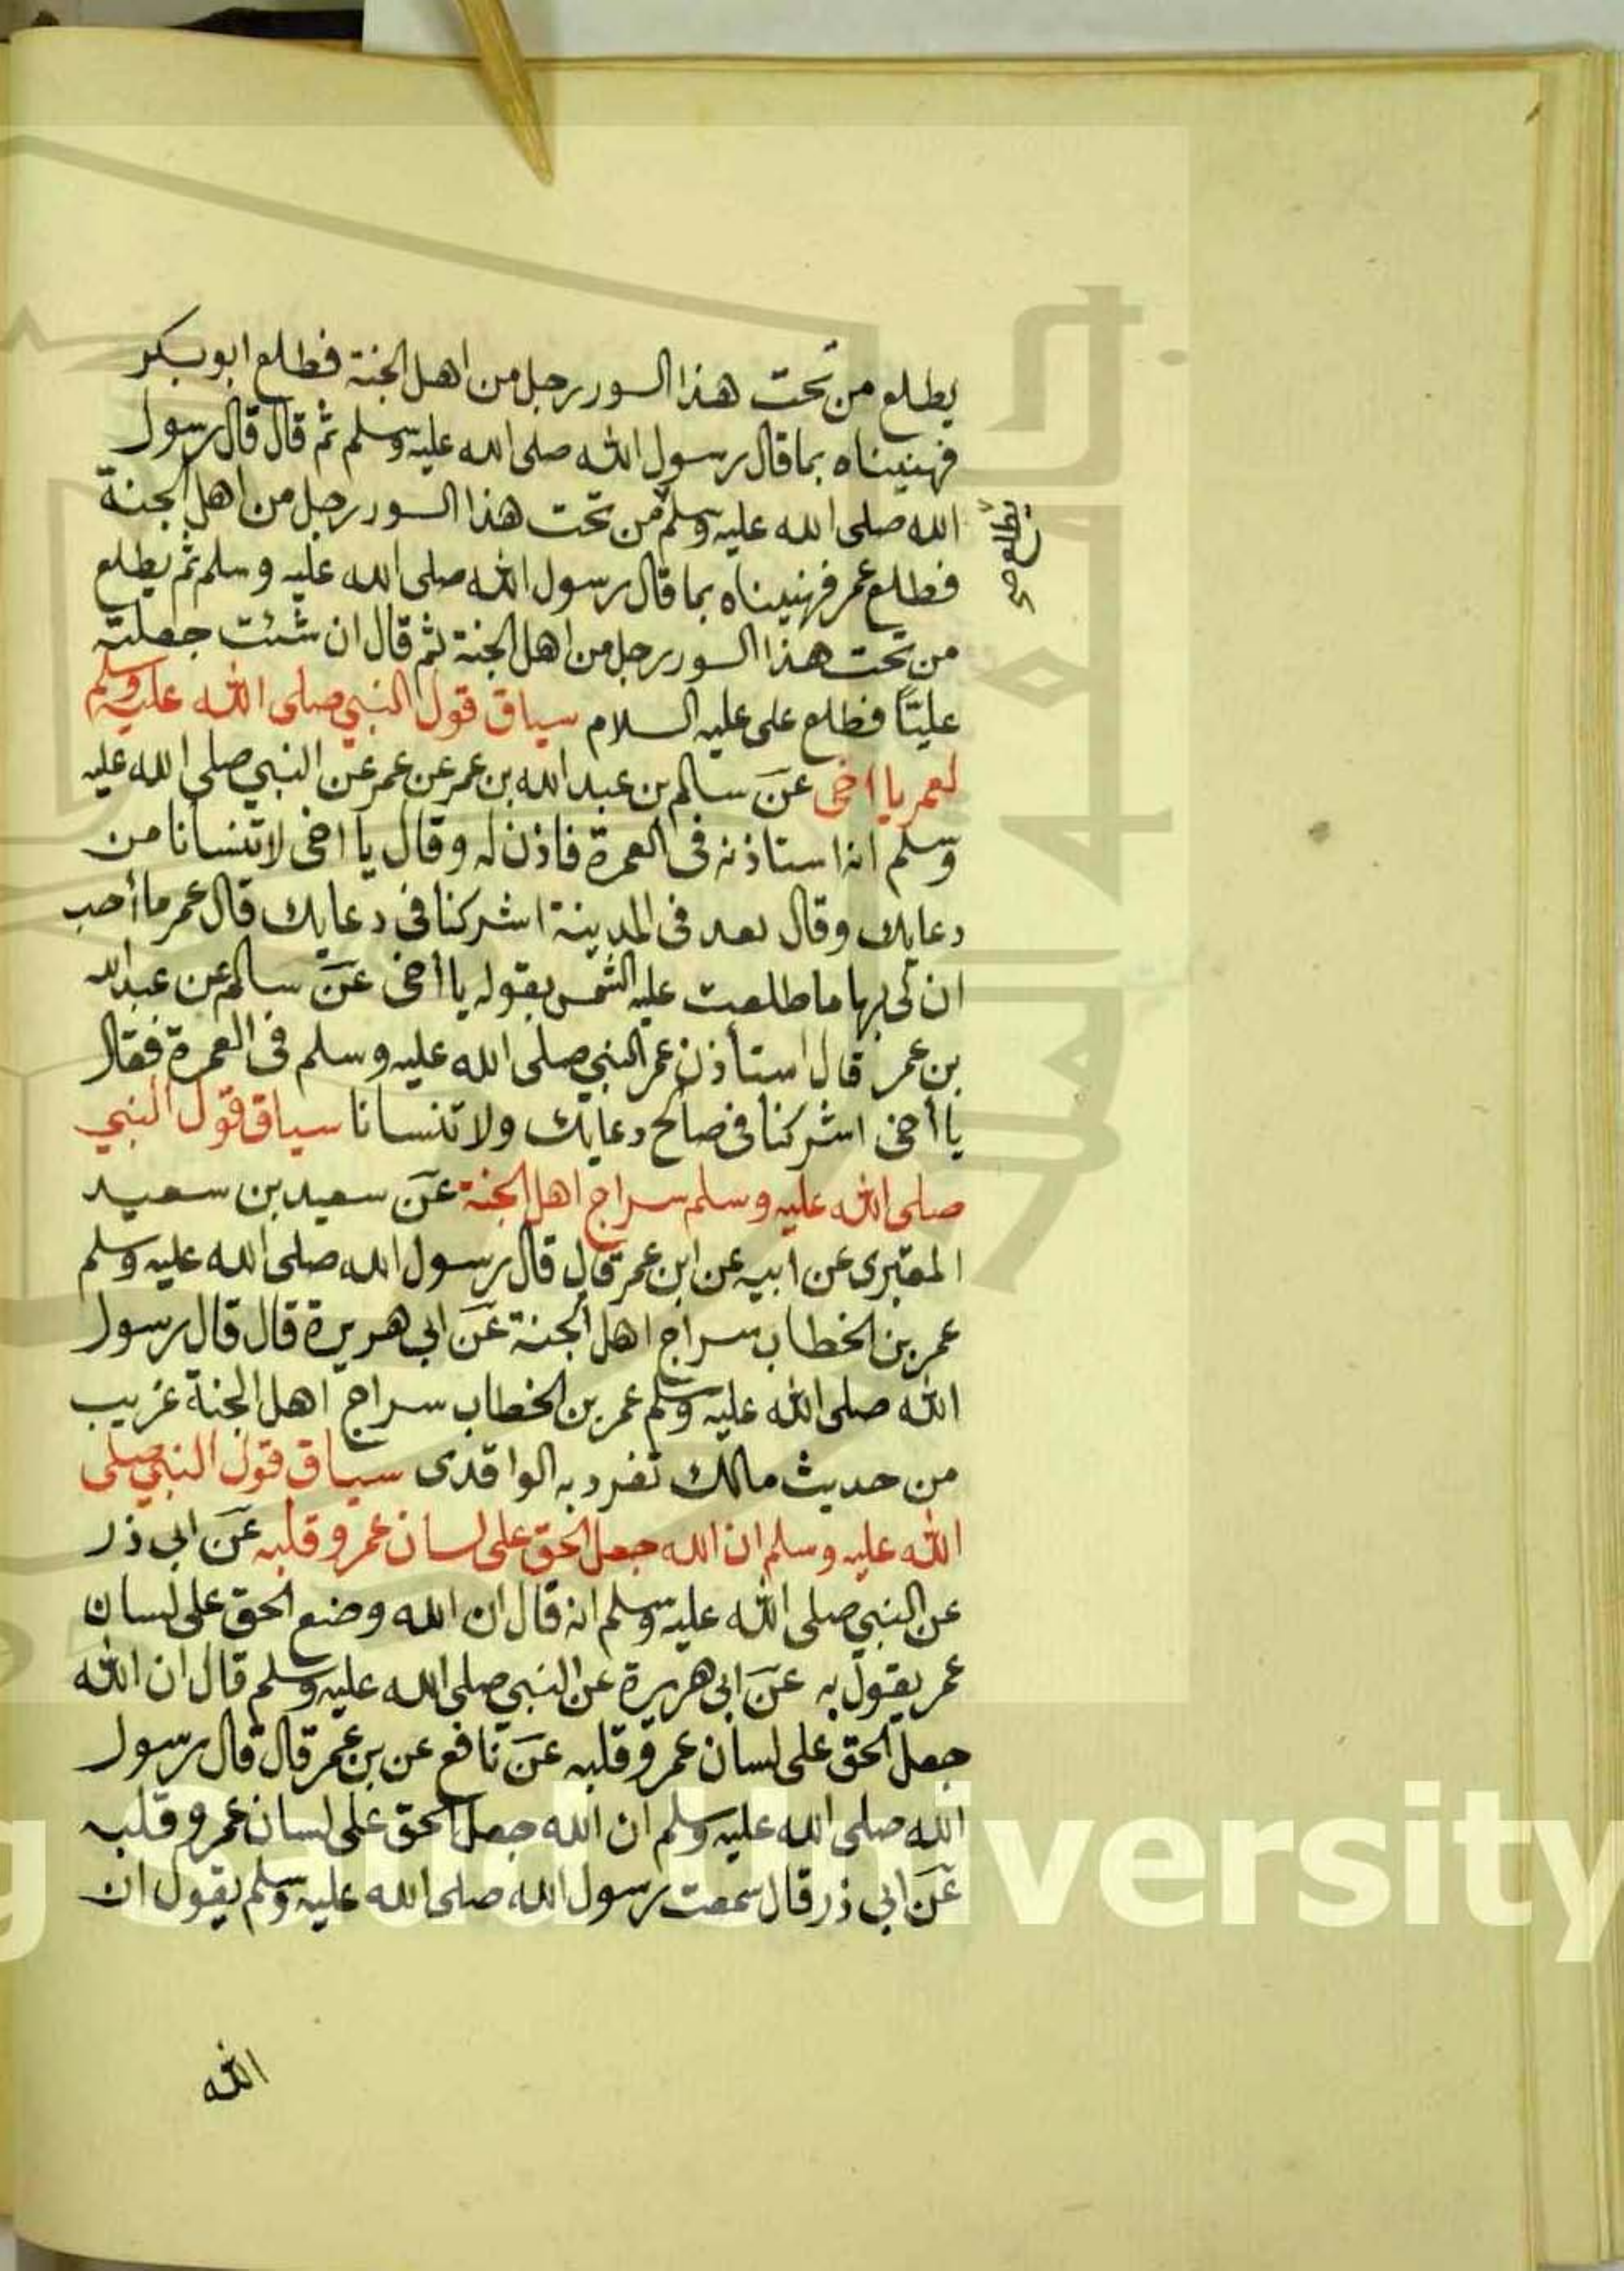 يطلع من تحت هذا السور رجل من اهل الجنة فطلع ابو بكر
فهنيناه بما قال رسول الله صلى الله عليه وسلم ثم قال قال رسول
الله صلى الله عليه وسلم من تحت هذا السور رجل من اهل الجنة
يطلع صح
فطلع عمر فهنيناه بما قال رسول الله صلى الله عليه وسلم ثم يطلع
من تحت هذا السور رجل من اهل الجنة ثم قال ان شئت جعلته
عليّاً فطلع على عليه السلام سياق قول النبي صلى الله عليه وسلم
لعمر يا اخى عن سالم بن عبد الله بن عمر عن عمر عن النبي صلى الله عليه
وسلم انه استاذنه فى العمرة فاذن له وقال يا اخى لا تنسانا من
دعايك وقال بعد فى المدينة اشركنا فى دعايك قال عمر ما أحب
ان لى بها ما طلعت عليه الشمس بقوله يا أخى عن سالم عن عبد الله
بن عمر قال استأذن عمر النبي صلى الله عليه وسلم فى العمرة فقال
يا أخى اشركنا فى صالح دعايك ولا تنسانا سياق قول النبي
صلى الله عليه وسلم سراج اهل الجنة عن سعيد بن سعيد
المقبرى عن ابيه عن ابن عمر قال قال رسول الله صلى الله عليه وسلم
عمر بن الخطاب سراج اهل الجنة عن ابى هريرة قال قال رسول
الله صلى الله عليه وسلم عمر بن الخطاب سراج اهل الجنة غريب
من حديث مالك تفرد به الواقدى سياق قول النبي صلى
الله عليه وسلم ان الله جعل الحق على لسان عمر وقلبه عن ابى ذر
عن النبي صلى الله عليه وسلم انه قال ان الله وضع الحق على لسان
عمر يقول به عن ابى هريرة عن النبي صلى الله عليه وسلم قال ان الله
جعل الحق على لسان عمر وقلبه عن نافع عن بن عمر قال قال رسول
الله صلى الله عليه وسلم ان الله جعل الحق على لسان عمر وقلبه
عن ابى ذر قال سمعت رسول الله صلى الله عليه وسلم يقول ان
الله